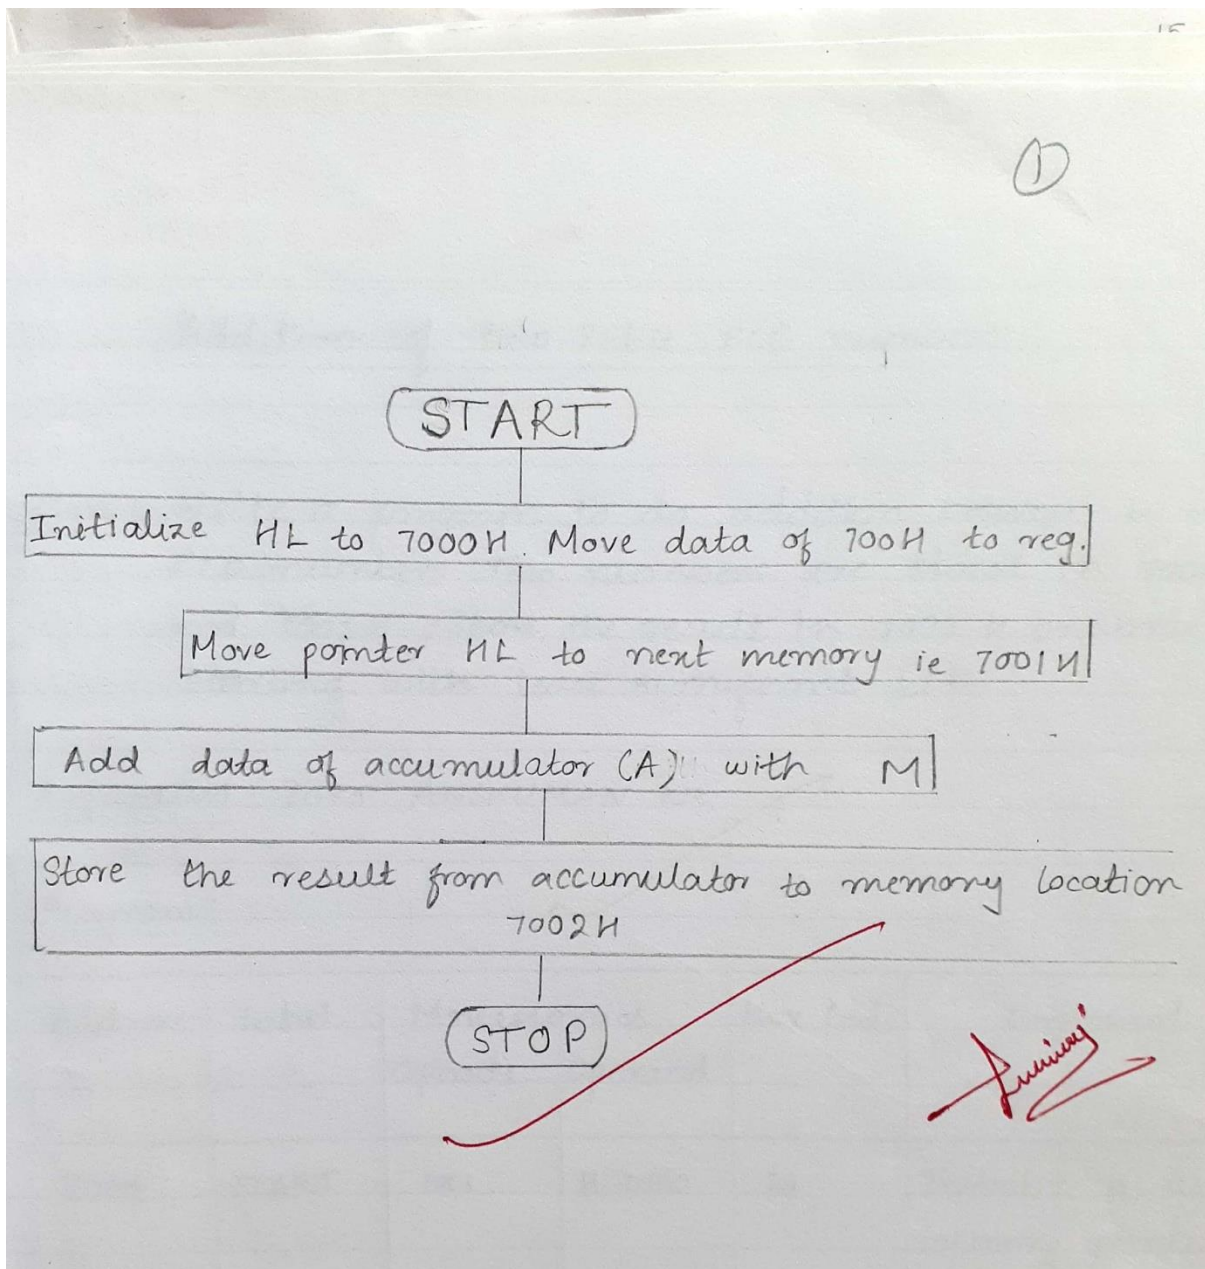 15
1
START
Initialize HL to 7000H. Move data of 700H to reg.
Move pointer HL to next memory ie 7001H
Add data of accumulator (A) with M
Store the result from accumulator to memory location
7002H
STOP